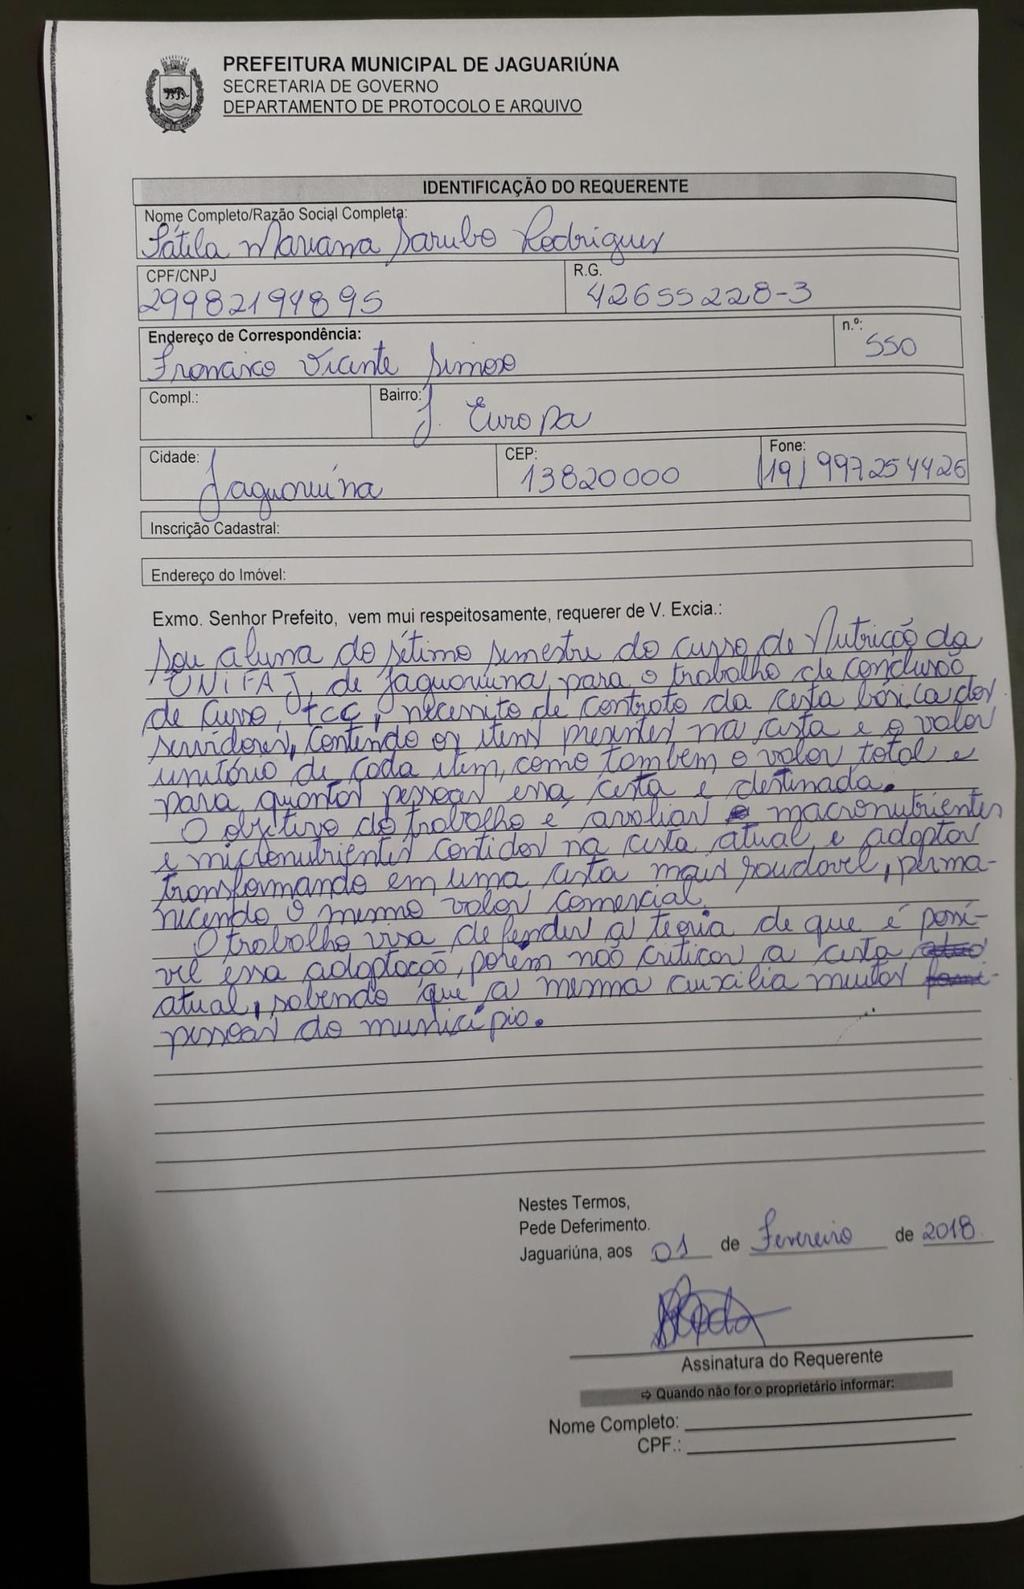 PREFEITURA MUNICIPAL DE JAGUARIÚNA
SECRETARIA DE GOVERNO
DEPARTAMENTO DE PROTOCOLO E ARQUIVO
IDENTIFICAÇÃO DO REQUERENTE
Nome Completo/Razão Social Completa:
Sátila Mariana Sarubo Rodrigues
CPF/CNPJ
29982194895
R.G.
42655228-3
Endereço de Correspondência:
Francisco Vicente Simoso
n.º:
550
Compl.:
Bairro:
J. Europa
Cidade:
Jaguariúna
CEP:
13820000
Fone:
(19) 997254426
Inscrição Cadastral:
Endereço do Imóvel:
Exmo. Senhor Prefeito, vem mui respeitosamente, requerer de V. Excia.:
Sou aluna do sétimo semestre do curso de Nutrição da
UNIFAJ, de Jaguariúna, para o trabalho de conclusão
de curso, tcc, necessito de contrato da cesta básica dos
servidores, contendo os itens presentes na cesta e o valor
unitário de cada item, como também o valor total e
para quantas pessoas essa cesta é destinada.
O objetivo do trabalho é avaliar macronutrientes
e micronutrientes contidos na cesta atual, e adaptar
transformando em uma cesta mais saudavel, perma-
necendo o mesmo valor comercial.
O trabalho visa defender a teoria de que é possí-
vel essa adaptação, porém não criticar a cesta
atual, sabendo que a mesma auxilia muitas
pessoas do município.
Nestes Termos,
Pede Deferimento.
Jaguariúna, aos 01 de Fevereiro de 2018
Assinatura do Requerente
⇨ Quando não for o proprietário informar:
Nome Completo:
CPF.: